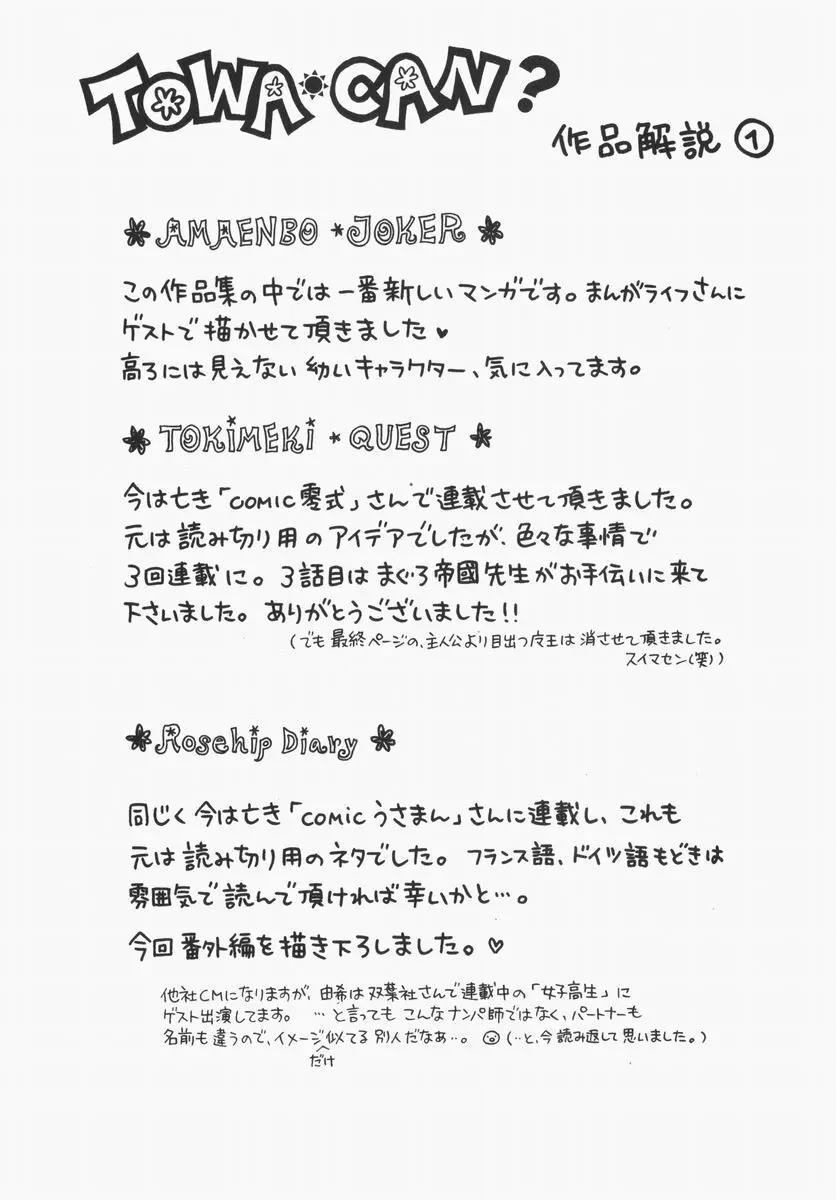 TOWA CAN?
作品解説 ①
AMAENBO * JOKER
この作品集の中では一番新しいマンガです。まんがライフさんに
ゲストで描かせて頂きました♥
高ろには見えない幼いキャラクター、気に入ってます。
TOKiMEKi * QUEST
今は亡き「COMIC零式」さんで連載させて頂きました。
元は読み切り用のアイデアでしたが、色々な事情で
3回連載に。3話目はまぐろ帝國先生がお手伝いに来て
下さいました。ありがとうございました!!
(でも最終ページの、主人公より目出つ皮王は消させて頂きました。
スイマセン(笑))
Rosehip Diary
同じく今は亡き「comicうさまん」さんに連載し、これも
元は読み切り用のネタでした。フランス語、ドイツ語もどきは
雰囲気で読んで頂ければ幸いかと…。
今回番外編を描き下ろしました。♡
他社CMになりますが、由希は双葉社さんで連載中の「女子高生」に
ゲスト出演してます。…と言ってもこんなナンパ師ではなく、パートナーも
名前も違うので、イメージだけ似てる別人だなあ…。(…と、今読み返して思いました。)